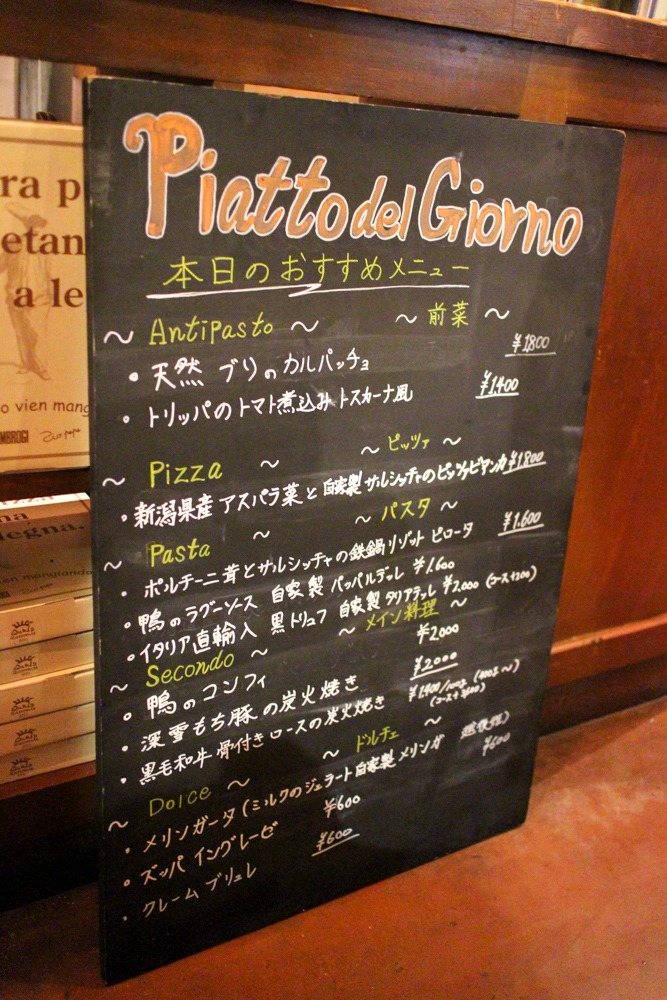 Piatto del Giorno
本日のおすすめメニュー
～ Antipasto ～ ～ 前菜 ～
・天然 ブリのカルパッチョ ¥1,800
・トリッパのトマト煮込みトスカーナ風 ¥1,400
～ Pizza ～ ～ ピッツァ ～
・新潟県産 アスパラ菜と自家製サルシッチャのピッツァビアンカ ¥1,800
～ Pasta ～ ～ パスタ ～
・ポルチーニ茸とサルシッチャの鉄鍋リゾット ピロータ ¥1,600
・鴨のラグーソース 自家製 パッパルデッレ ¥1,600
・イタリア直輸入 黒トリュフ 自家製タリアテッレ ¥2,000 (コース+200)
～ Secondo ～ ～ メイン料理 ～
・鴨のコンフィ ¥2000
・深雪もち豚の炭火焼き ¥2000
・黒毛和牛 骨付きロースの炭火焼き ¥1900/100g (400g～)
～ Dolce ～ ～ ドルチェ ～
・メリンガータ (ミルクのジェラート自家製メリンガ ¥600
・ズッパ イングレーゼ ¥600
・クレーム ブリュレ ¥600
ra p
etan
a le
o vien mang
MBROGI
na
legna.
en mangiando